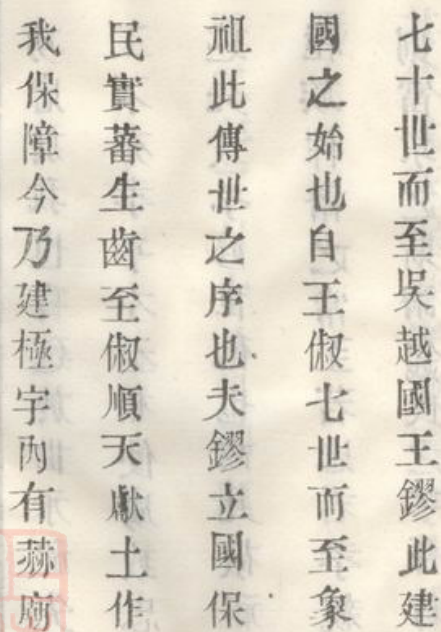 七十世而至吳越國王鏐此建
國之始也自王俶七世而至象
祖此傳世之序也夫鏐立國保
民實蕃生齒至俶順天獻土作
我保障今乃建極宇內有赫廟